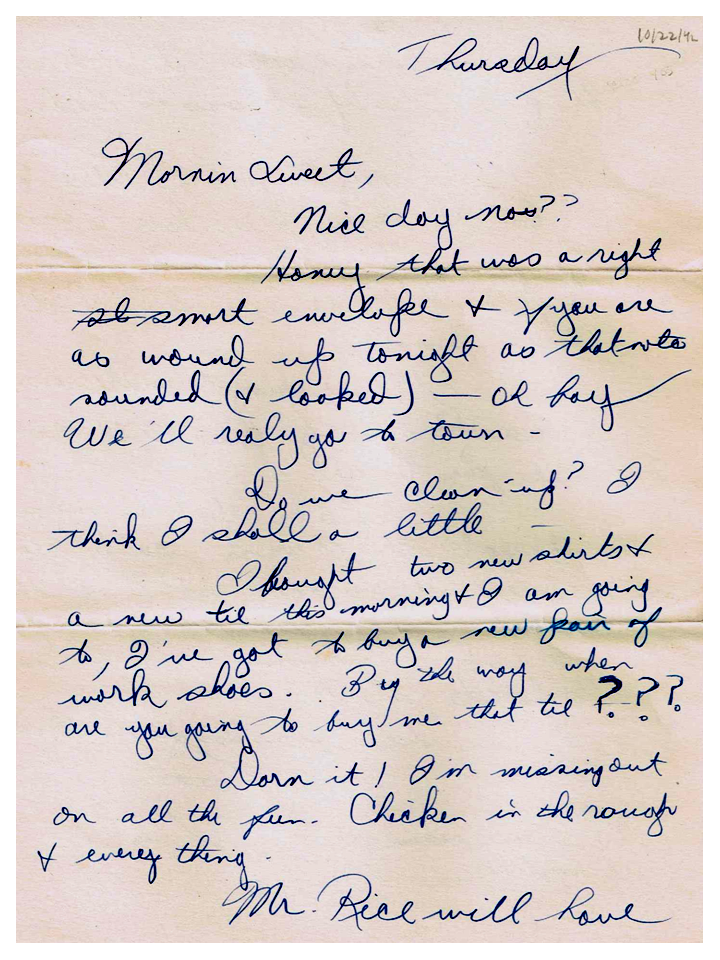 10/22/42
Thursday
Mornin Sweet,
Nice day now??
Honey that was a right
st smart envelope & if you are
as wound up tonight as that note
sounded (& looked) — Oh boy
We'll realy go to town -
Do we clean-up? I
think I shall a little —
I bought two new shirts &
a new tie this morning & I am going
to, I've got to buy a new pair of
work shoes. By the way when
are you going to buy me that tie ???
Darn it! I'm missing out
on all the fun. Chicken in the rough
& every thing.
Mr. Rice will have